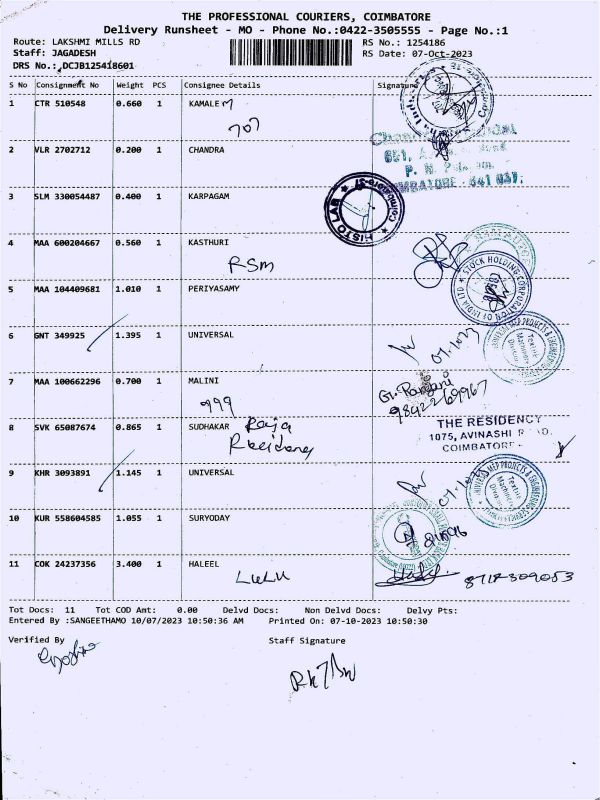 THE PROFESSIONAL COURIERS, COIMBATORE
Delivery Runsheet - MO - Phone No.:0422-3505555 - Page No.:1
Route: LAKSHMI MILLS RD RS No.: 1254186
Staff: JAGADESH RS Date: 07-Oct-2023
DRS No.: DCJB125418601
S No Consignment No Weight PCS Consignee Details Signature
1 CTR 510548 0.660 1 KAMALE M
707
2 VLR 2702712 0.200 1 CHANDRA
COIMBATORE - 641 037.
3 SLM 330054487 0.400 1 KARPAGAM
HISTO LAB
4 MAA 600204667 0.560 1 KASTHURI
RSM
5 MAA 104409681 1.010 1 PERIYASAMY
STOCK HOLDING CORPORATION OF INDIA LTD
6 GNT 349925 1.395 1 UNIVERSAL
Textile
Machinery
Division
7 MAA 100662296 0.700 1 MALINI
999
G. Ranjani
9842269967
8 SVK 65087674 0.865 1 SUDHAKAR Raja
THE RESIDENCY
1075, AVINASHI
COIMBATORE -
9 KHR 3093891 1.145 1 UNIVERSAL
Textile
Machinery
Division
10 KUR 558604585 1.055 1 SURYODAY
11 COK 24237356 3.400 1 HALEEL
LULU
Tot Docs: 11 Tot COD Amt: 0.00 Delvd Docs: Non Delvd Docs: Delvy Pts:
Entered By :SANGEETHAMO 10/07/2023 10:50:36 AM Printed On: 07-10-2023 10:50:30
Verified By Staff Signature